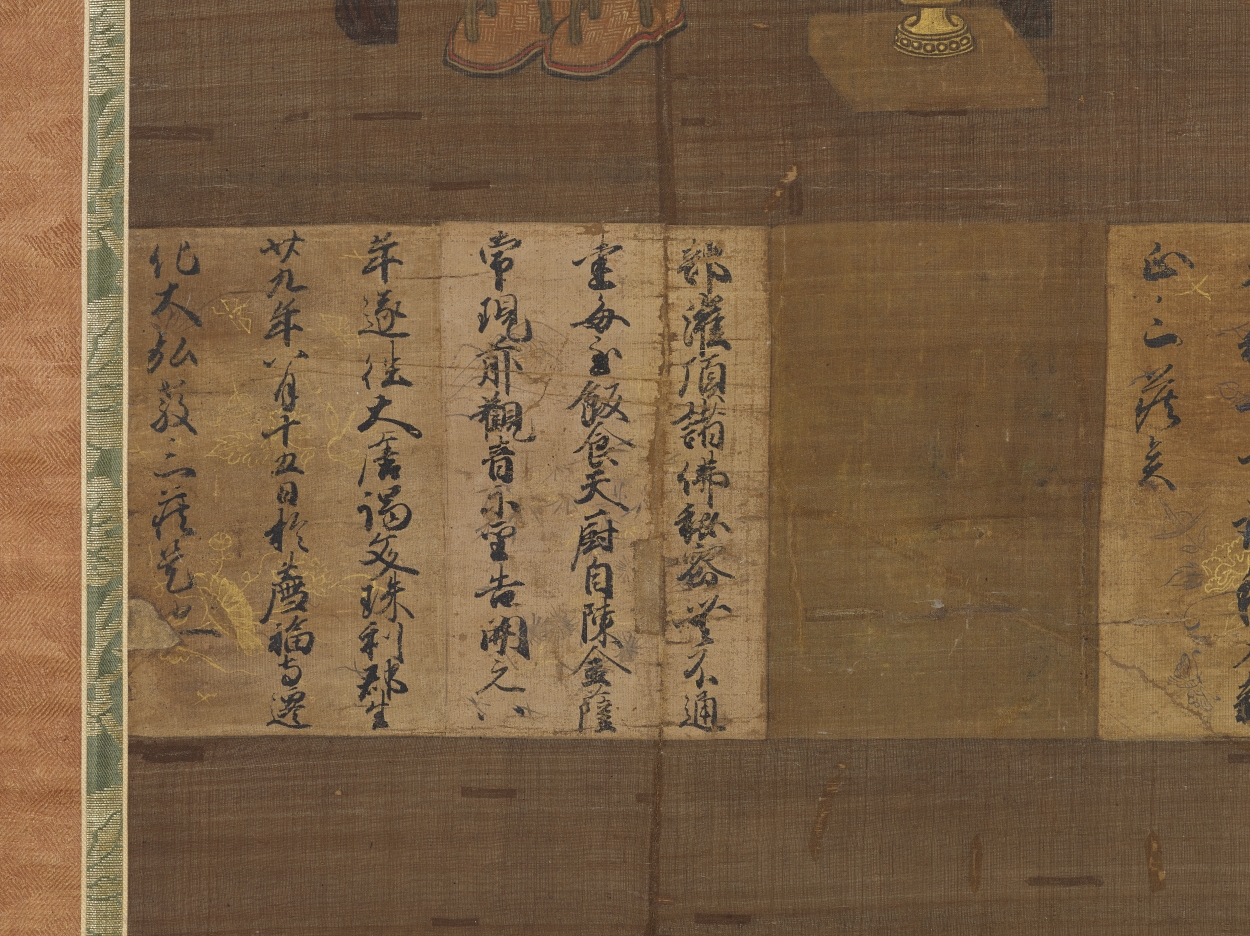 藏矣
部灌頂諸佛秘密無不通
達每至飯食天厨自陳金薩
常現前觀音示聖告開元八
年遂往大唐謁文殊利群生
廿九年八月十五日於薦福寺遷
化大弘教三藏是也